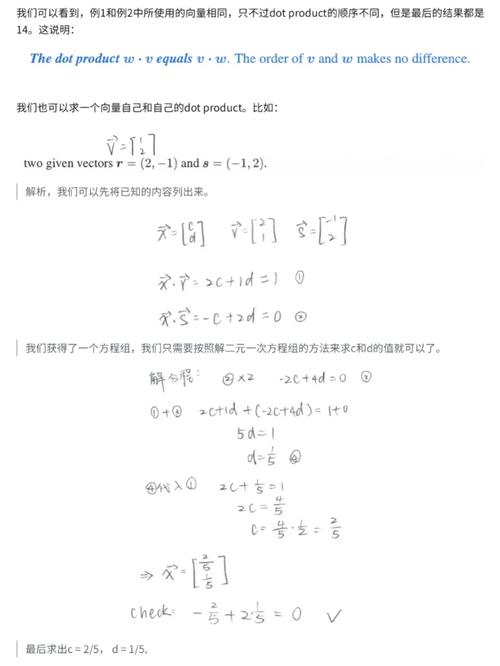 我们可以看到，例1和例2中所使用的向量相同，只不过dot product的顺序不同，但是最后的结果都是
14。这说明：
The dot product w · v equals v · w. The order of v and w makes no difference.
我们也可以求一个向量自己和自己的dot product。比如：
v⃗=[1 2]
two given vectors r = (2, −1) and s = (−1, 2).
解析，我们可以先将已知的内容列出来。
x⃗=[c d] v⃗=[2 1] s⃗=[-1 2]
x⃗·r⃗=2c+1d=1 ①
x⃗·s⃗=-c+2d=0 ②
我们获得了一个方程组，我们只需要按照解二元一次方程组的方法来求c和d的值就可以了。
解方程： ②×2 -2c+4d=0 ③
①+③ 2c+1d+(-2c+4d)=1+0
5d=1
d=1/5 ④
④代入① 2c+1/5=1
2c=4/5
c=4/5·1/2=2/5
⇒ x⃗=[2/5 1/5]
check: -2/5+2·1/5=0 ✓
最后求出c = 2/5， d = 1/5.